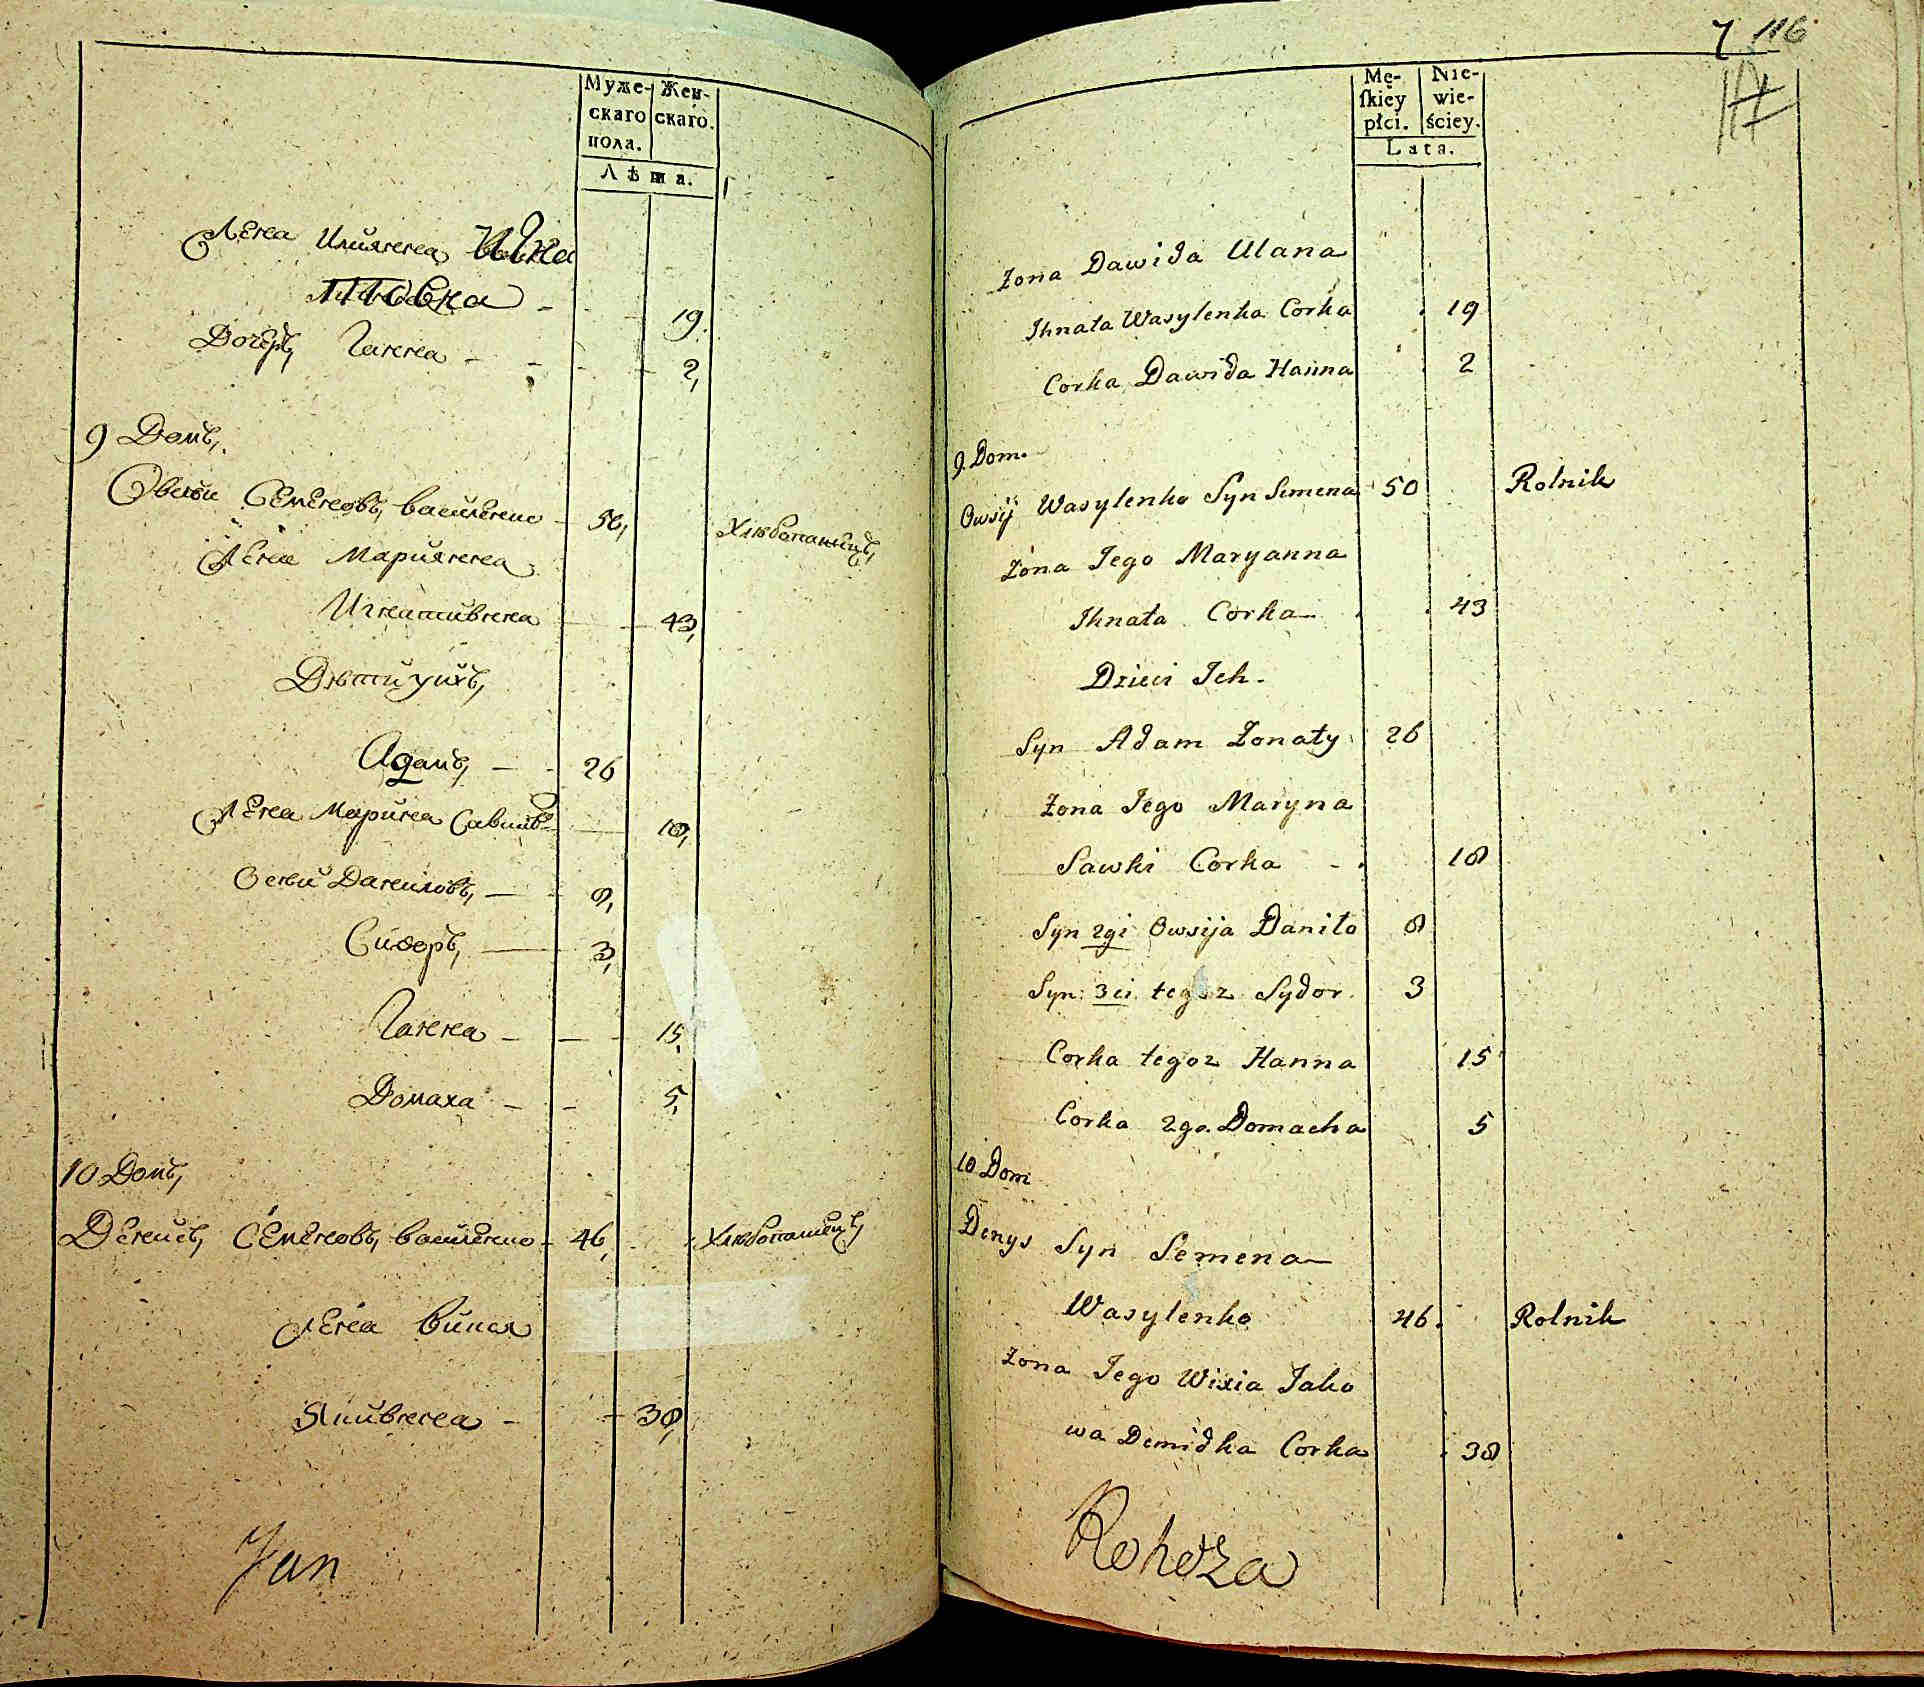 Муже-
скаго
пола.
Жен-
скаго.
Лѣта.
Жена Ульянна Игна
товна 19.
Дочерь Ганна 2,
9 Домъ,
Овсѣй Семеновъ, василенко 50, Хлѣбопашецъ,
Жена Марианна
Игнативнна 43,
Дѣти ихъ,
Адамъ, 26
Жена Марина Савина 18,
Сидоръ, 3,
Ганна 15,
Домаха 5,
10 Домъ,
Денисъ, Семеновъ, василенко 46, Хлѣбопашецъ,
Жена
38,
Jan
7 116
Mę-
ſkiey
płci.
Nie-
wie-
ściey.
Lata.
Zona Dawida Ulana
Ihnata Wasylenka Corka 19
Corka Dawida Hanna 2
9. Dom.
Owsij Wasylenko Syn Semena 50 Rolnik
Zona Jego Maryanna
Ihnata Corka 43
Dzieci Ich.
Syn Adam Zonaty 26
Zona Jego Maryna
Sawki Corka 18
Syn 2gi Owsija Daniło 8
Syn 3ci tegoz Sydor 3
Corka tegoz Hanna 15
Corka 2ga Domacha 5
10 Dom
Denys Syn Semena
Wasylenko 46. Rolnik
Zona Jego Wixia Jako
wa Demidka Corka 38
Rohoza